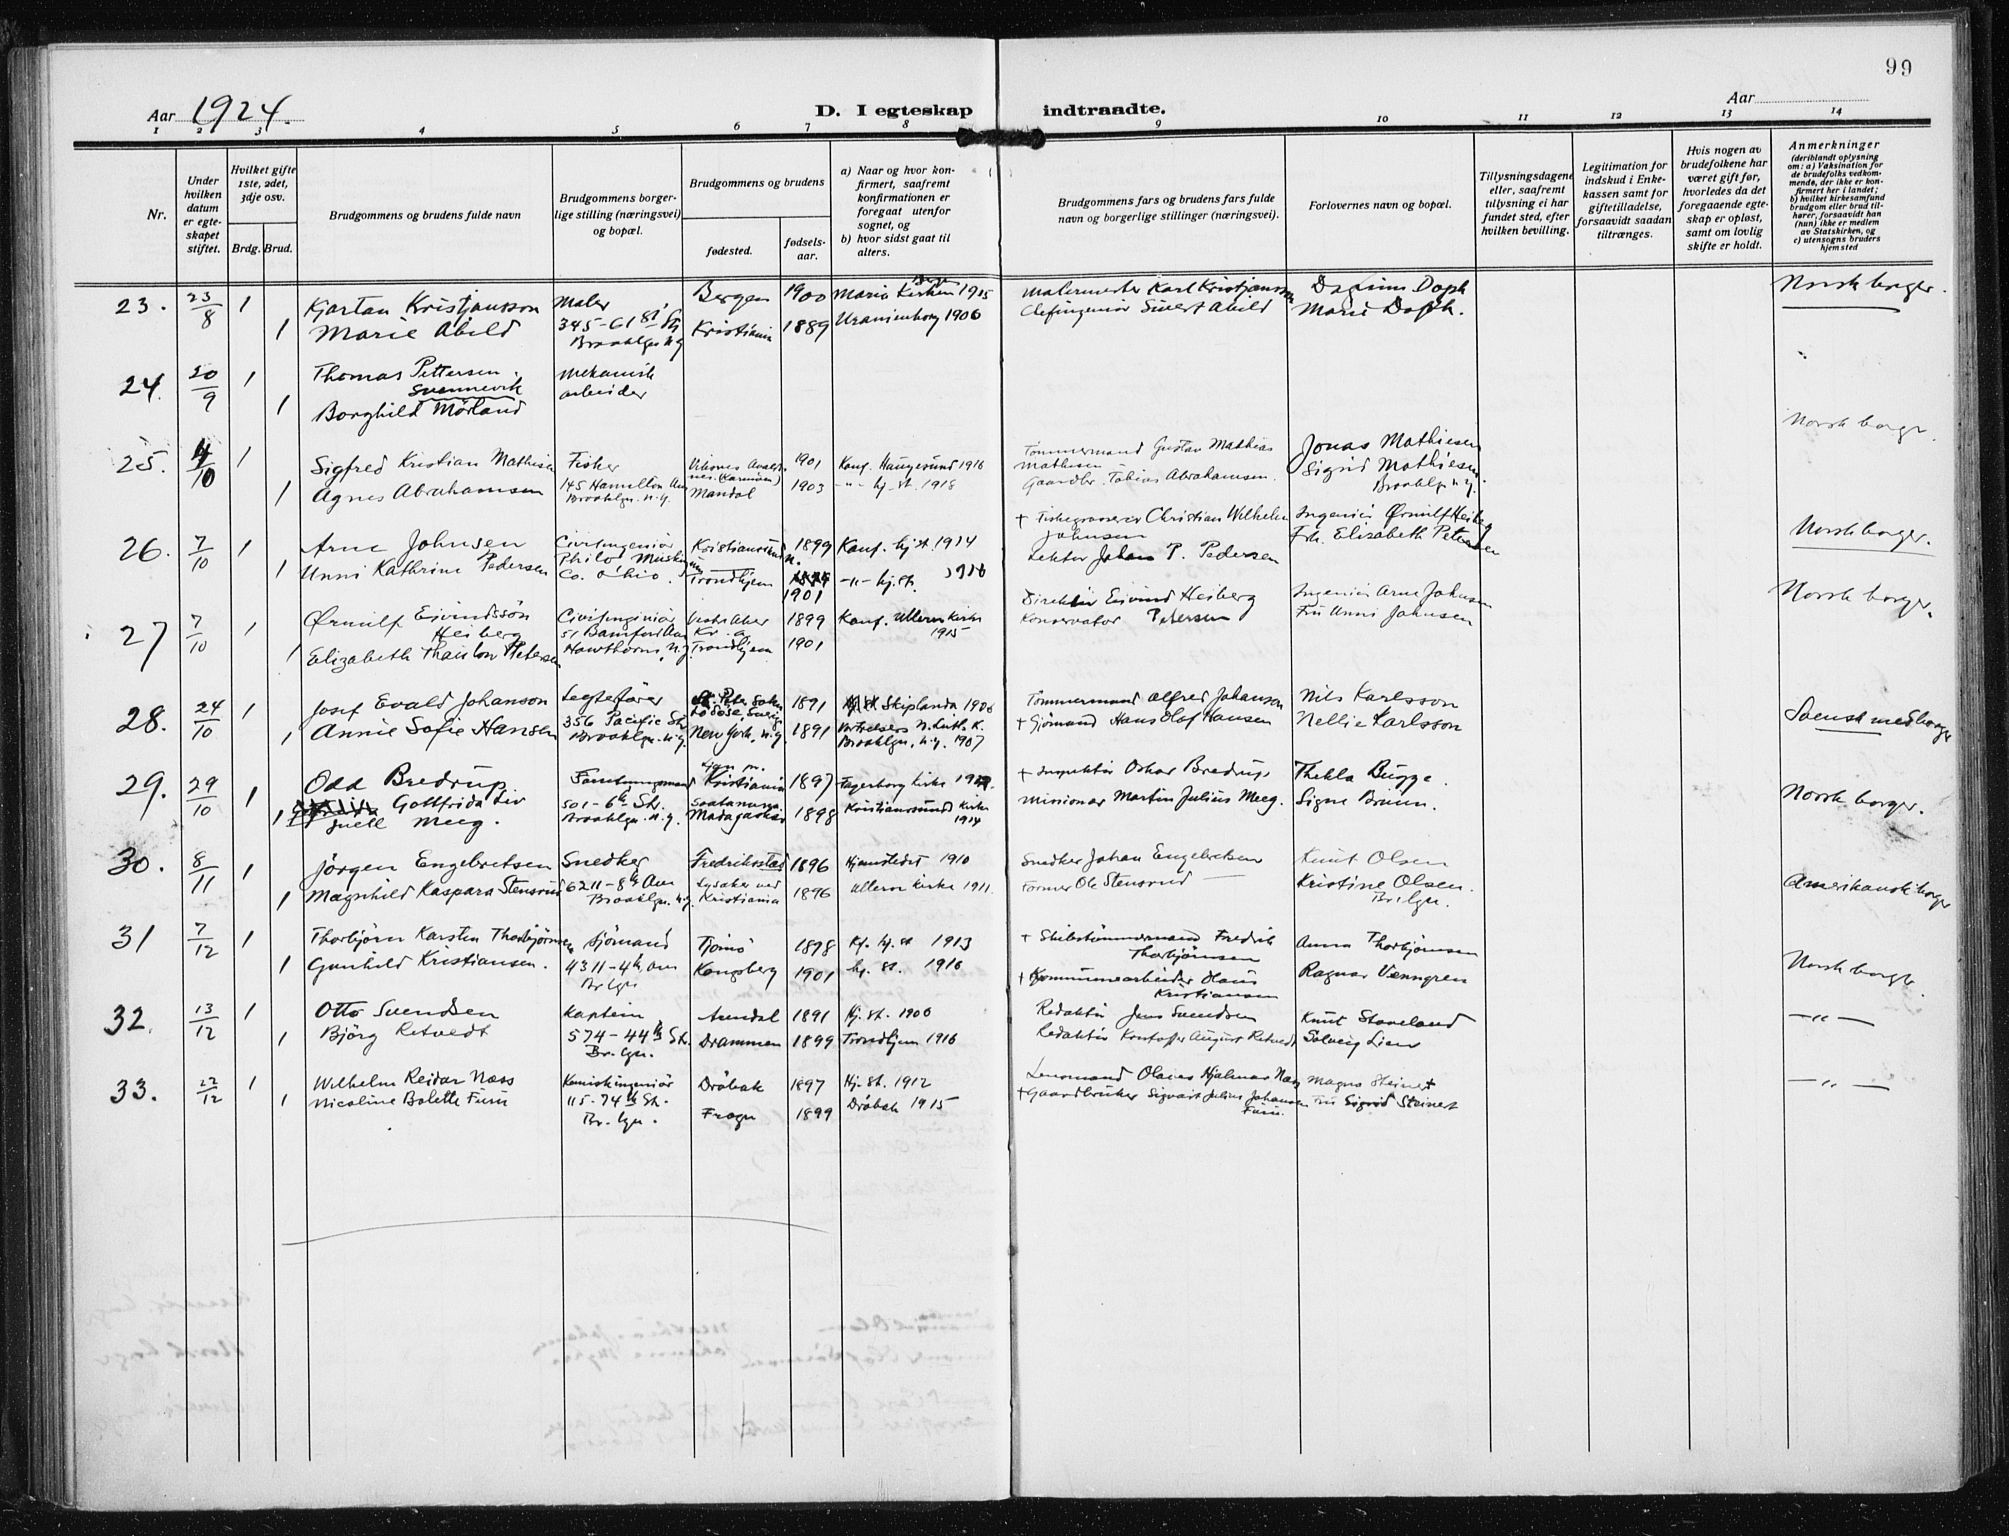 99
Aar 1924.
D. I egteskap indtraadte.
Aar
1 2 3 4 5 6 7 8 9 10 11 12 13 14
Nr.
Under hvilken datum er egteskapet stiftet.
Hvilket gifte 1ste, 2det, 3dje osv.
Brdg. Brud.
Brudgommens og brudens fulde navn
Brudgommens borgerlige stilling (næringsvei) og bopæl.
Brudgommens og brudens
fødested.
fødselsaar.
a) Naar og hvor konfirmert, saafremt konfirmationen er foregaat utenfor sognet, og
b) hvor sidst gaat til alters.
Brudgommens fars og brudens fars fulde navn og borgerlige stillinger (næringsvei).
Forlovernes navn og bopæl.
Tillysningsdagene eller, saafremt tillysning ei har fundet sted, efter hvilken bevilling.
Legitimation for indskud i Enkekassen samt for giftetilladelse, forsaavidt saadan tiltrænges.
Hvis nogen av brudefolkene har været gift før, hvorledes da det foregaaende egteskap er opløst, samt om lovlig skifte er holdt.
Anmerkninger
(deriblandt oplysning om: a) Vaksination for de brudefolks vedkommende, der ikke er konfirmert her i landet; b) hvilket kirkesamfund brudgom eller brud tilhører, forsaavidt han (hun) ikke er medlem av Statskirken, og c) utensogns bruders hjemsted
23. 23/8 1 Kjartan Kristjansson Maler Bergen 1900 Maria Kirken 1915 Malermester Karl Kristjansson Norsk borger.
1 Marie Abild 345-61st St. Brooklyn N.Y. Kristiania 1889 Uranienborg 1906 Sivert Abild Marie
24. 20/9 1 Thomas Pettersen Svennevik mekanisk arbeider
1 Borghild Mørland
25. 4/10 1 Sigfred Kristian Mathisen Fisker 1901 Konf. Haugesund 1916 Tømmermand Gustav Mathias Mathisen Jonas Mathiesen Norsk borger.
1 Agnes Abrahamsen 145 Hamilton Ave Brooklyn. N.Y. Mandal 1903 -"- hj. st. 1918 Gaardbr. Tobias Abrahamsen. Sigrid Mathiesen Brooklyn N.Y.
26. 7/10 1 Arne Johnsen Civilingeniør Kristianssund N. 1899 Konf. hj. st. 1914 + Christian Wilhelm Johnsen Ingeniør Ørnulf Heiberg Norsk borger.
1 Unni Kathrine Pedersen Co. Ohio. Trondhjem 1901 -"- hj. st. 1916 Lektor Johan P. Pedersen Frk. Elizabeth Petersen
27 7/10 1 Ørnulf Eivindssøn Heiberg Civilingeniør Vestre Aker 1899 Konf. Ullern Kirke 1915 Direktør Eivind Heiberg Ingeniør Arne Johnsen Norsk borger.
1 Elizabeth Petersen Trondhjem 1901 Konservator Petersen Fru Unni Johnsen
28. 24/10 1 Josef Evald Johanson 1891 Skiplanda 1906 Tømmermand Alfred Johanson Nils Karlsson Svensk medborger
1 Annie Sofie Hansen 356 Pacific St. Brooklyn. N.Y. New York, N.Y. 1891 Brooklyn, N.Y. 1907 + Sjömand Hans Olaf Hansen Nellie Karlsson
29. 29/10 1 Odd Bredrup Kristiania 1897 Fagerborg Kirke + Inspektör Oskar Bredrup Thekla Bugge. Norsk borger.
1 Gottfrida Liv Meeg. 501-6th St. Brooklyn. N.Y. Madagaskar 1898 Kristianssund Kirke 1914 Missionær Martin Julius Meeg. Signe Bruun.
30. 8/11 1 Jørgen Engebretsen Snedker Fredrikstad 1896 Hjemstedet 1910 Snedker Johan Engebretsen Knut Olsen Amerikansk borger
1 Magnhild Kaspara Stensrud 6211-8th Ave Brooklyn. N.Y. Lysaker ved Kristiania 1896 Ullern Kirke 1911. Former Ole Stensrud Kristine Olsen. Br.lyn.
31 7/12 1 Thorbjörn Karsten Thorbjörnsen Sjömand Tjømø 1898 Kf. hj. st 1913 + Skibstömmermand Fredrik Thorbjörnsen Anna Thorbjörnsen Norsk borger.
1 Gunhild Kristiansen. 4311-4th Ave Br.lyn Kongsberg 1901 hj. st. 1916 + Kommunearbeider Olaus Kristiansen Ragnar Venngren
32. 13/12 1 Otto Svendsen Kaptein Arendal 1891 Hj. st. 1906 Redaktör Jens Svendsen Knut Staveland -"-
1 Björg Retvedt 574-44th St. Br.lyn. Drammen 1899 Trondhjem 1916 Redaktör August Retvedt Solveig Lien
33. 22/12 1 Wilhelm Reidar Næss Kemiskingeniør Dröbak 1897 Hj. st. 1912 Lensmand Olaves Hjalmar Næss Magns Steinert -"-
1 Nicoline Bolette Furu 115-74th St. Br.lyn. Frogn 1899 Dröbak 1915 + Gaardbruker Sigvart Julius Johansen Furu. Fru Sigrid Steinert